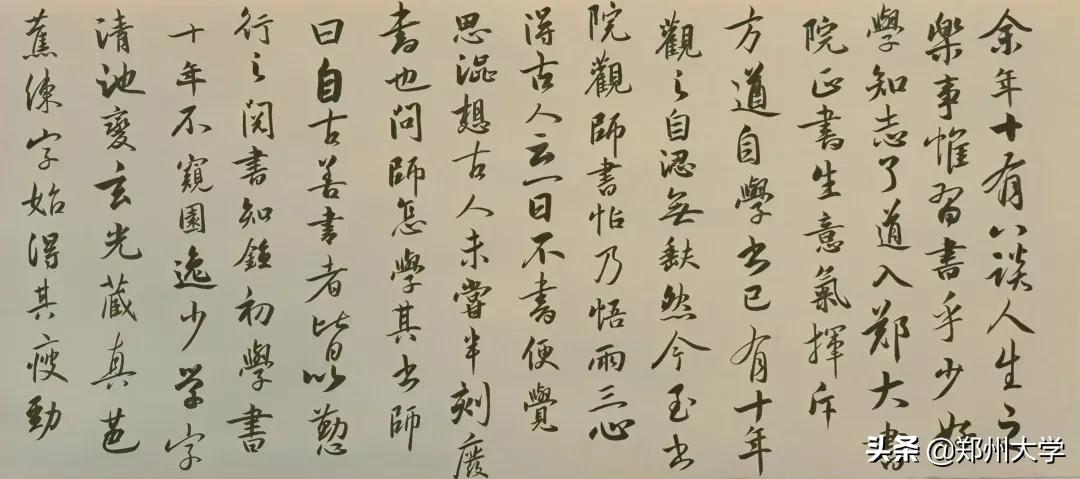 余年十有八談人生之
樂事惟習書乎少始
學知志了道入鄭大書
院正書生意氣揮斥
方道自學书已有十年
觀之自認無缺然今至书
院觀師書帖乃悟雨三心
得古人云一日不書便覺
思澀想古人未嘗半刻廢
書也問師怎學其书師
曰自古善書者皆以勤
行之閱書知鍾初學書
十年不窺園逸少学字
清池變玄光藏真芭
蕉練字始得其瘦勁
头条 @郑州大学